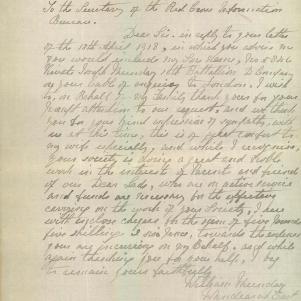 To the Secretary of the Red Cross Information
Bureau.
Dear Sir. in reply to your letter
of the 18th April 1918, in which you advise me
you would include my Son Name, No
Private Joseph Thursday 10th Battalion D Company
on your list of enquiries to London. I wish
to, on Behalf of my family thank you for your
prompt attention to our request, and also thank
you for your kind expression of sympathy, with
us at this time, this is of great comfort to
my wife especially, and while I recognise,
your society is doing a great and Noble
work in the interest of Parents and friends
of our Dear Lads, who are on active service
and funds are necessary for the effective
carrying on the work of your Society, I here
with enclose cheque for the sum of five Pounds
five shillings & six pence, towards the expense
you are incurring on my Behalf, and while
again thanking you for your help, I beg
to remain yours faithfully
William Thursday